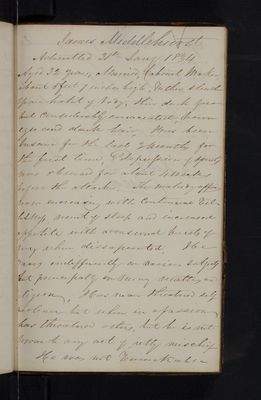 James Middlehurst
Admitted 31st Jany 1834
Aged 32 years, Married, Cabinet Maker,
about 5 feet 7 inches high, rather slender
spare habit of body, thin dark face
but considerably emaciated, brown
eyes and dark hair. Has been
Insane for the last 2 months for
the first time, & depression of spirits
was observed for about 4 weeks
before the attack. The malady appears
now increasing with continual
want of sleep and increased
appetite with occasional bursts of
rage when disappointed. He
raves indifferently on various subjects
but principally on money matters, or
religion. Has never threatened self
violence but when in a passion
has threatened others, but he is not
prone to any act of petty mischief
He was not remarkable